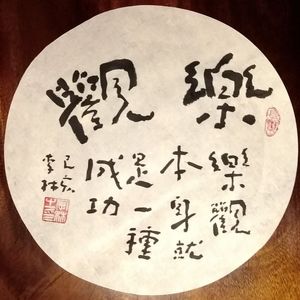 樂觀
樂觀
本身就
是一種
成功
己亥